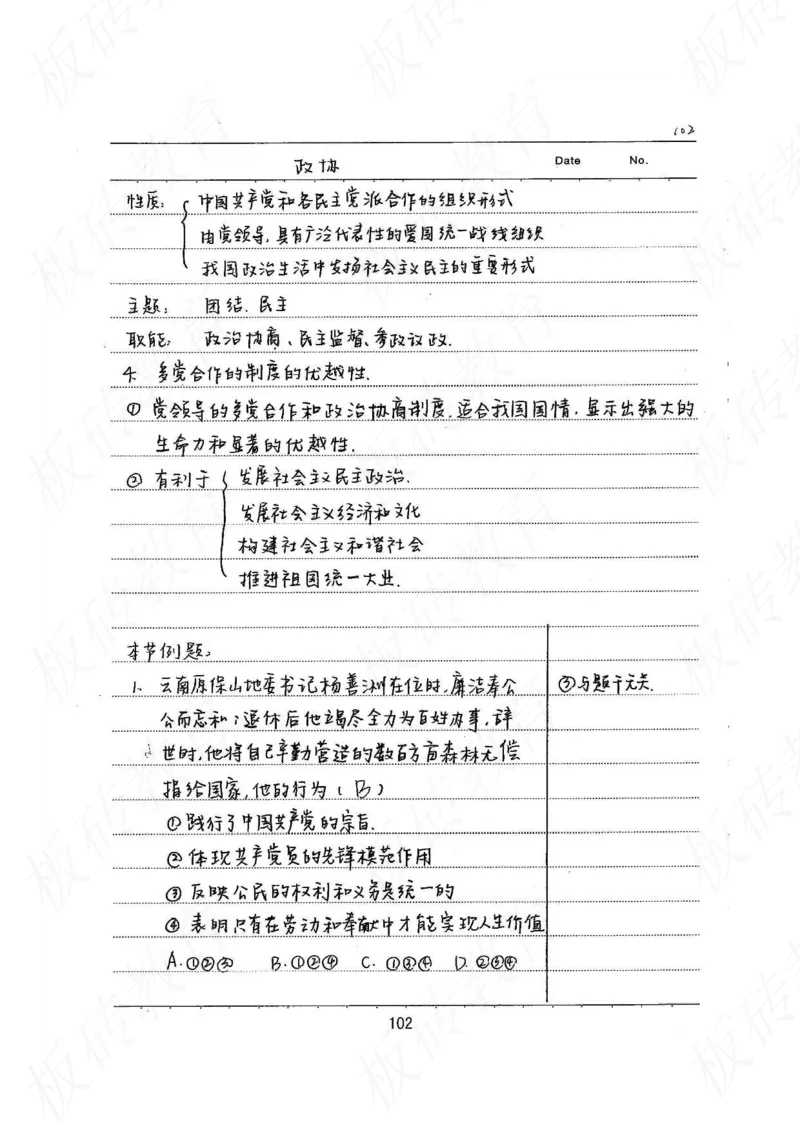 102
政协
Date No.
性质： 中国共产党和各民主党派合作的组织形式
由党领导，具有广泛代表性的爱国统一战线组织
我国政治生活中发扬社会主义民主的重要形式
主题： 团结、民主
职能： 政治协商、民主监督、参政议政.
4. 多党合作的制度的优越性.
① 党领导的多党合作和政治协商制度，适合我国国情，显示出强大的
生命力和显著的优越性.
② 有利于 发展社会主义民主政治.
发展社会主义经济和文化
构建社会主义和谐社会
推进祖国统一大业.
本节例题：
1. 云南原保山地委书记杨善洲在位时，廉洁奉公 ③与题干无关.
公而忘私；退休后他竭尽全力为百姓办事，辞
世时，他将自己辛勤营造的数百万亩森林无偿
捐给国家，他的行为（B）
①践行了中国共产党的宗旨.
②体现共产党员的先锋模范作用
③反映公民的权利和义务是统一的
④表明只有在劳动和奉献中才能实现人生价值
A.①②③ B.①②④ C.①③④ D.②③④
102
板砖教育